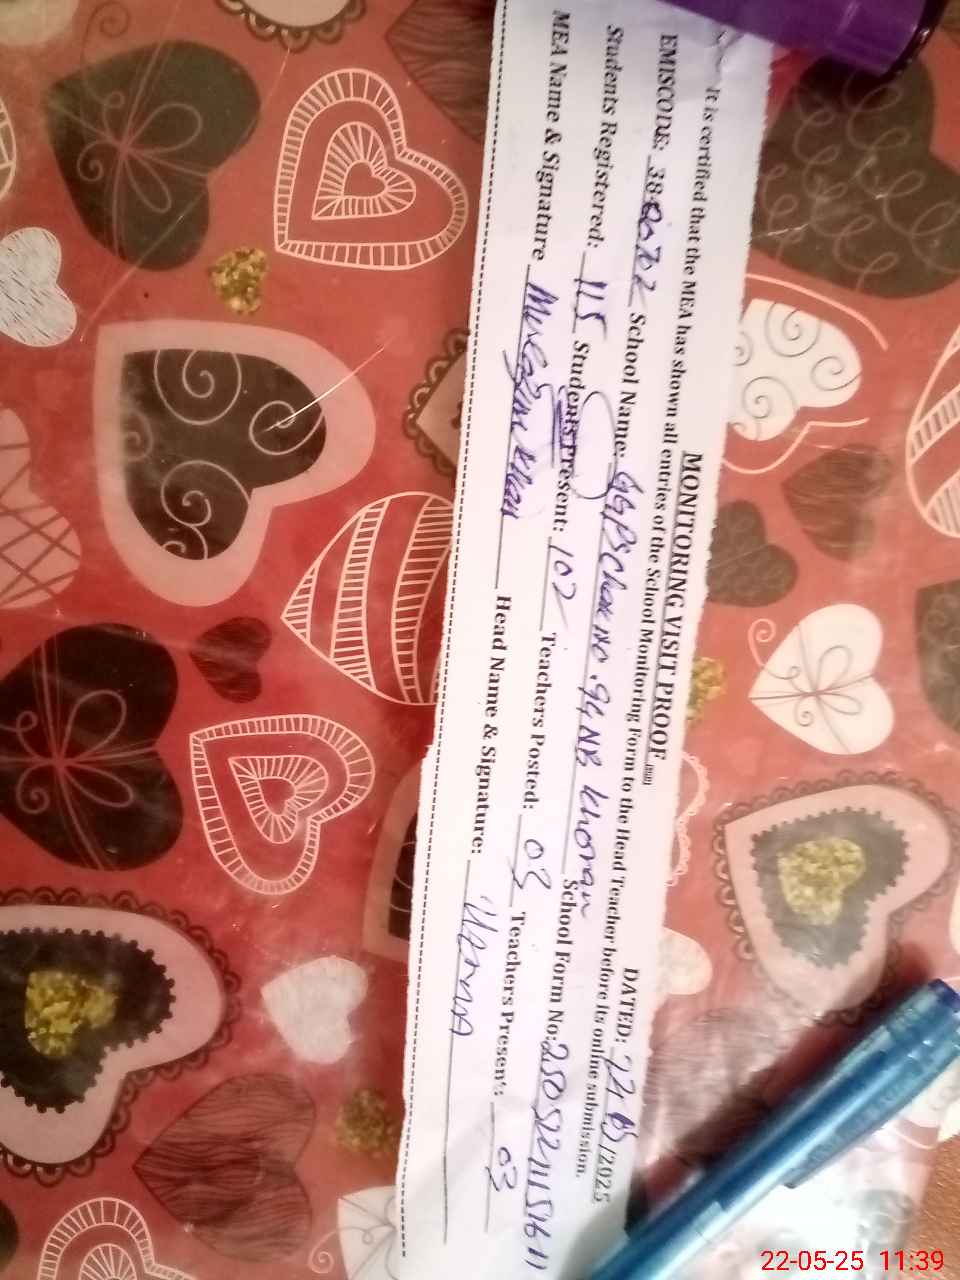 MONITORING VISIT PROOF
DATED: 22/05/2025
It is certified that the MEA has shown all entries of the School Monitoring Form to the Head Teacher before its online submission.
EMISCODE: School Name: GGPS Chak No. 94 NB Khoran School Form No: 25052211151611
Students Registered: 115 Students Present: 102 Teachers Posted: 03 Teachers Present: 03
MEA Name & Signature Khan Head Name & Signature: UZMMA
22-05-25 11:39